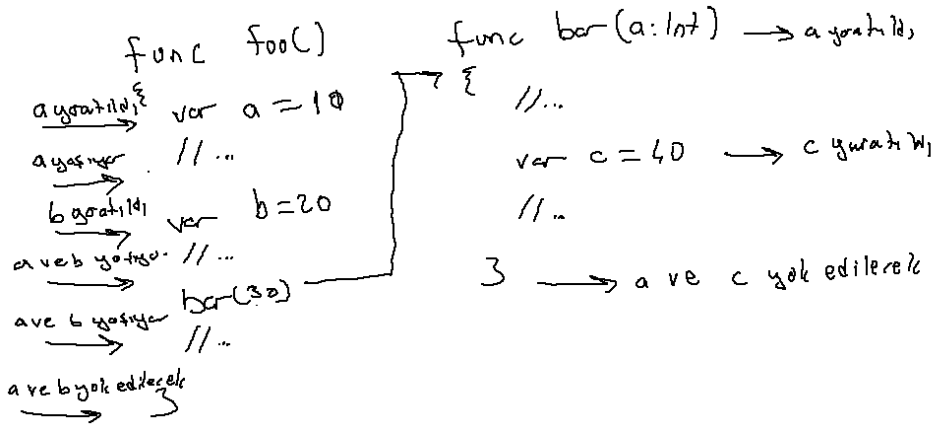 func foo()
a yaratıldı {
var a = 10
a yaşıyor //...
b yaratıldı
var b = 20
a ve b yaşıyor //...
bar(30)
a ve b yaşıyor //...
a ve b yok edilecek }
func bar(a: Int) → a yaratıldı
{
//...
var c = 40 → c yaratıldı
//...
} → a ve c yok edilecek